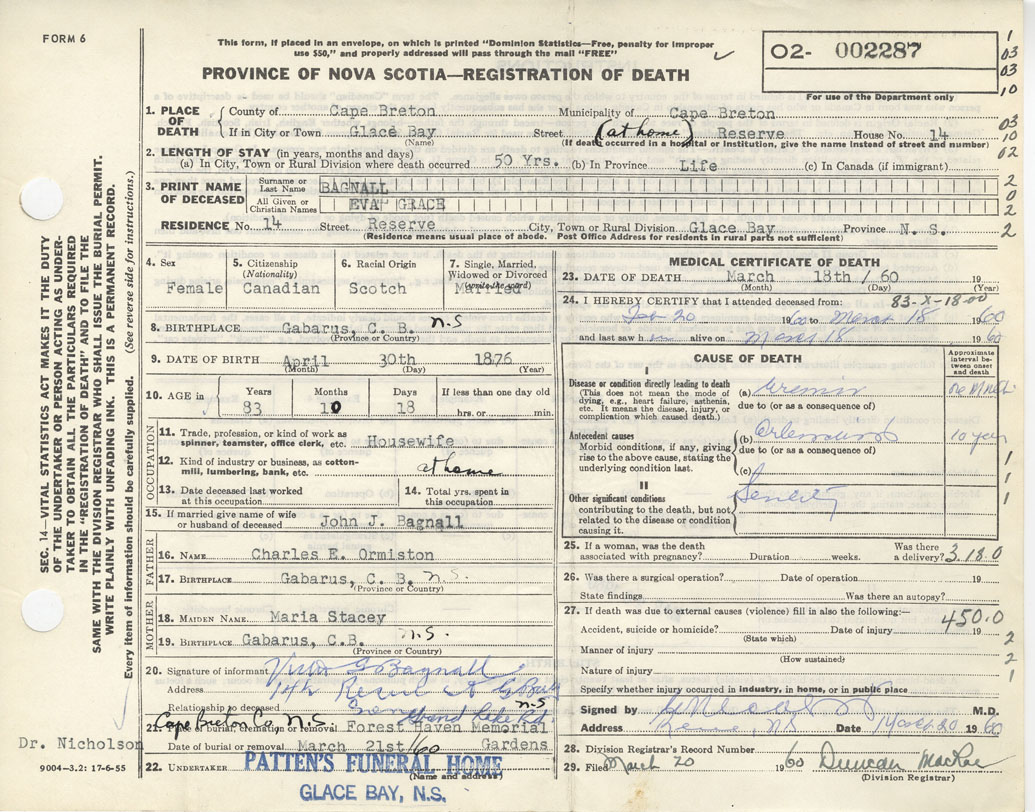 FORM 6
This form, if placed in an envelope, on which is printed "Dominion Statistics—Free, penalty for improper
use $50," and properly addressed will pass through the mail "FREE"
O2- 002287
For use of the Department only
1
03
03
10
PROVINCE OF NOVA SCOTIA—REGISTRATION OF DEATH
1. PLACE OF DEATH
County of Cape Breton Municipality of Cape Breton 03
If in City or Town Glace Bay Street (at home) Reserve House No. 14 10
(Name) (If death occurred in a hospital or Institution, give the name instead of street and number)
2. LENGTH OF STAY (in years, months and days) 02
(a) In City, Town or Rural Division where death occurred 50 Yrs. (b) In Province Life (c) In Canada (if immigrant)
3. PRINT NAME OF DECEASED
Surname or Last Name BAGNALL 2
0
All Given or Christian Names EVA GRACE 2
RESIDENCE No. 14 Street Reserve City, Town or Rural Division Glace Bay Province N. S. 2
(Residence means usual place of abode. Post Office Address for residents in rural parts not sufficient)
4. Sex Female
5. Citizenship (Nationality) Canadian
6. Racial Origin Scotch
7. Single, Married, Widowed or Divorced (write the word) Married
8. BIRTHPLACE Gabarus, C. B. N.S
(Province or Country)
9. DATE OF BIRTH April 30th 1876
(Month) (Day) (Year)
10. AGE in Years 83 Months 10 Days 18 If less than one day old hrs. or min.
OCCUPATION
11. Trade, profession, or kind of work as spinner, teamster, office clerk, etc. Housewife
12. Kind of industry or business, as cotton-mill, lumbering, bank, etc. at home
13. Date deceased last worked at this occupation
14. Total yrs. spent in this occupation
15. If married give name of wife or husband of deceased John J. Bagnall
FATHER
16. NAME Charles E. Ormiston
17. BIRTHPLACE Gabarus, C. B. N.S.
(Province or Country)
MOTHER
18. MAIDEN NAME Maria Stacey
19. BIRTHPLACE Gabarus, C.B. N.S.
(Province or Country)
20. Signature of informant Bagnall
Address
Relationship to deceased
Grand Lake Rd. N.S
21. Place of burial, cremation or removal Cape Breton Co. N.S. Forest Haven Memorial
Gardens
Date of burial or removal March 21st/60
Dr. Nicholson
22. UNDERTAKER PATTEN'S FUNERAL HOME
(Name and address)
GLACE BAY, N.S.
9004-3.2: 17-6-55
SEC. 14—VITAL STATISTICS ACT MAKES IT THE DUTY
OF THE UNDERTAKER OR PERSON ACTING AS UNDER-
TAKER TO OBTAIN ALL THE PARTICULARS REQUIRED
IN THE "REGISTRATION OF DEATH" AND TO FILE THE
SAME WITH THE DIVISION REGISTRAR WHO SHALL ISSUE THE BURIAL PERMIT.
WRITE PLAINLY WITH UNFADING INK. THIS IS A PERMANENT RECORD.
Every item of information should be carefully supplied. (See reverse side for instructions.)
MEDICAL CERTIFICATE OF DEATH
23. DATE OF DEATH March 18th / 60 19
(Month) (Day) (Year)
24. I HEREBY CERTIFY that I attended deceased from: 83-X-18-00
Feb 20 1960 to March 18 1960
and last saw h alive on March 18 1960
CAUSE OF DEATH
Approximate interval between onset and death
I
Disease or condition directly leading to death
(This does not mean the mode of dying, e.g., heart failure, asthenia, etc. It means the disease, injury, or complication which caused death.)
(a) Uremia
due to (or as a consequence of)
Antecedent causes
Morbid conditions, if any, giving rise to the above cause, stating the underlying condition last.
(b) 10 years
due to (or as a consequence of)
(c)
1
1
1
II
Other significant conditions
contributing to the death, but not related to the disease or condition causing it.
Senility
25. If a woman, was the death associated with pregnancy? Duration weeks. Was there a delivery? 3.18.0
26. Was there a surgical operation? Date of operation 19
State findings Was there an autopsy?
27. If death was due to external causes (violence) fill in also the following:— 450.0
Accident, suicide or homicide? Date of injury 19 2
(State which)
Manner of injury 2
(How sustained)
Nature of injury 1
Specify whether injury occurred in industry, in home, or in public place
Signed by M.D.
Address Reserve, N.S Date March 20 1960
28. Division Registrar's Record Number
29. Filed March 20 1960 Duncan MacRae
(Division Registrar)